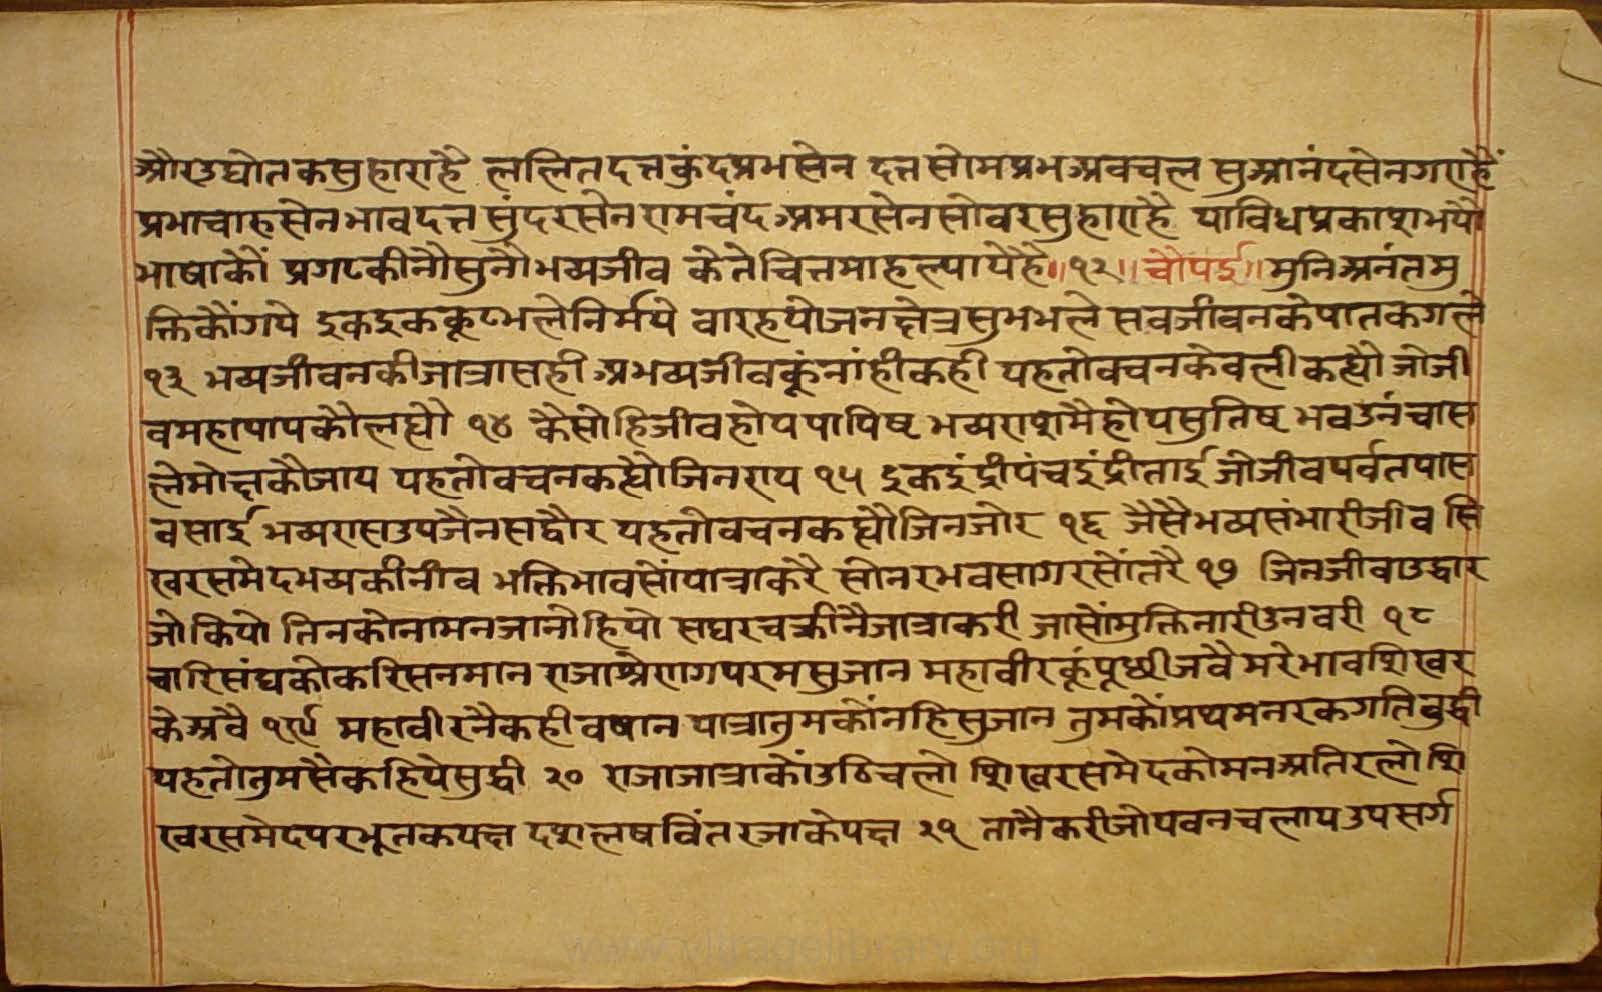 औरउद्योतकसुहाराहै ललितदत्तकुंदप्रभसेन दत्तसोमप्रभअवचल सुआनंदसेनगराहैं
प्रभाचारुसेनभावदत्त सुंदरसेनरामचंद अमरसेनसोवरसुहाराहै याविधप्रकाशभयौ
भाषाकौं प्रगटकीनौसुनौभव्यजीव केतेचित्तमाहल्यायेहै॥१२॥चौपई॥मुनिअनंतमु
क्तिकौंगये इकइककूटभलेनिर्मये बारहयोजनक्षेत्रसुभभले सबजीवनकेपातकगले
१३ भव्यजीवनकीजात्रासही अभव्यजीवकूंनांहीकही यहतोवचनकेवलीकह्यौ जोजी
वमहापापकौलह्यौ १४ कैसोहिजीवहोयपापिष्ट भव्यराशमैहोयसुतिष्ट भवउनंचास
लेमोक्षकौजाय यहतोवचनकह्यौजिनराय १५ इकइंद्रीपंचइंद्रीताई जोजीवपर्वतपास
बसाई भव्यरासउपजैनसद्वौर यहतोवचनकह्यौजिनजोर १६ जैसैभव्यसंभारीजीव सि
खरसमेदभव्यकीनीव भक्तिभावसोंयात्राकरै सोनरभवसागरसोंतरै १७ जिनजीवाउद्धार
जोकियो तिनकोनामनजानौहियो सघरचक्रीनैजात्राकरी जासोंमुक्तिनारीउनवरी १८
चारिसंघकोकरिसनमान राजाश्रेणागपरमसुजान महावीरकूंपूछीजवै मरेभावशिखर
केअवै १९ महावीरनैकहीवषान यात्रातुमकोंनहिसुजान तुमकोंप्रथमनरकगतिबुद्धी
यहतोतुमसैंकहियेसुद्धी २० राजाजात्राकोंउठिचलो शिखरसमेदकोमनअतिरलो शि
खरसमेदपरभूतकयक्ष दशलषविंतरजाकेपक्ष २१ तानैकरीजोपवनचलाय उपसर्ग
www.vitragelibrary.org